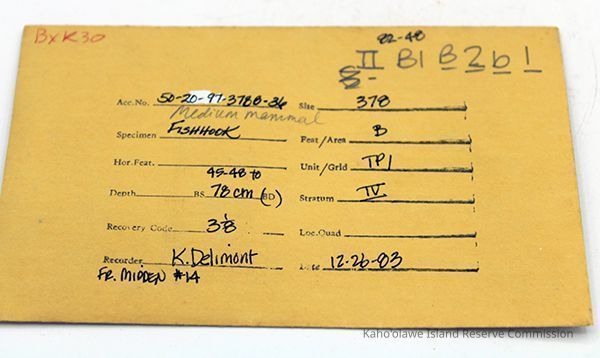 BxK30
82-48
II B1 B 2 b 1
Acc.No. 50-20-97-378B-36 Site 378
Medium mammal
Specimen FISHHOOK Feat/Area B
Hor.Feat. Unit/Grid TP1
45-48 to
Depth BS 78cm (BD) Stratum IV
Recovery Code 38 Loc.Quad
Recorder K. Delimont Date 12-26-83
FR. MIDDEN #14
Kahoʻolawe Island Reserve Commission